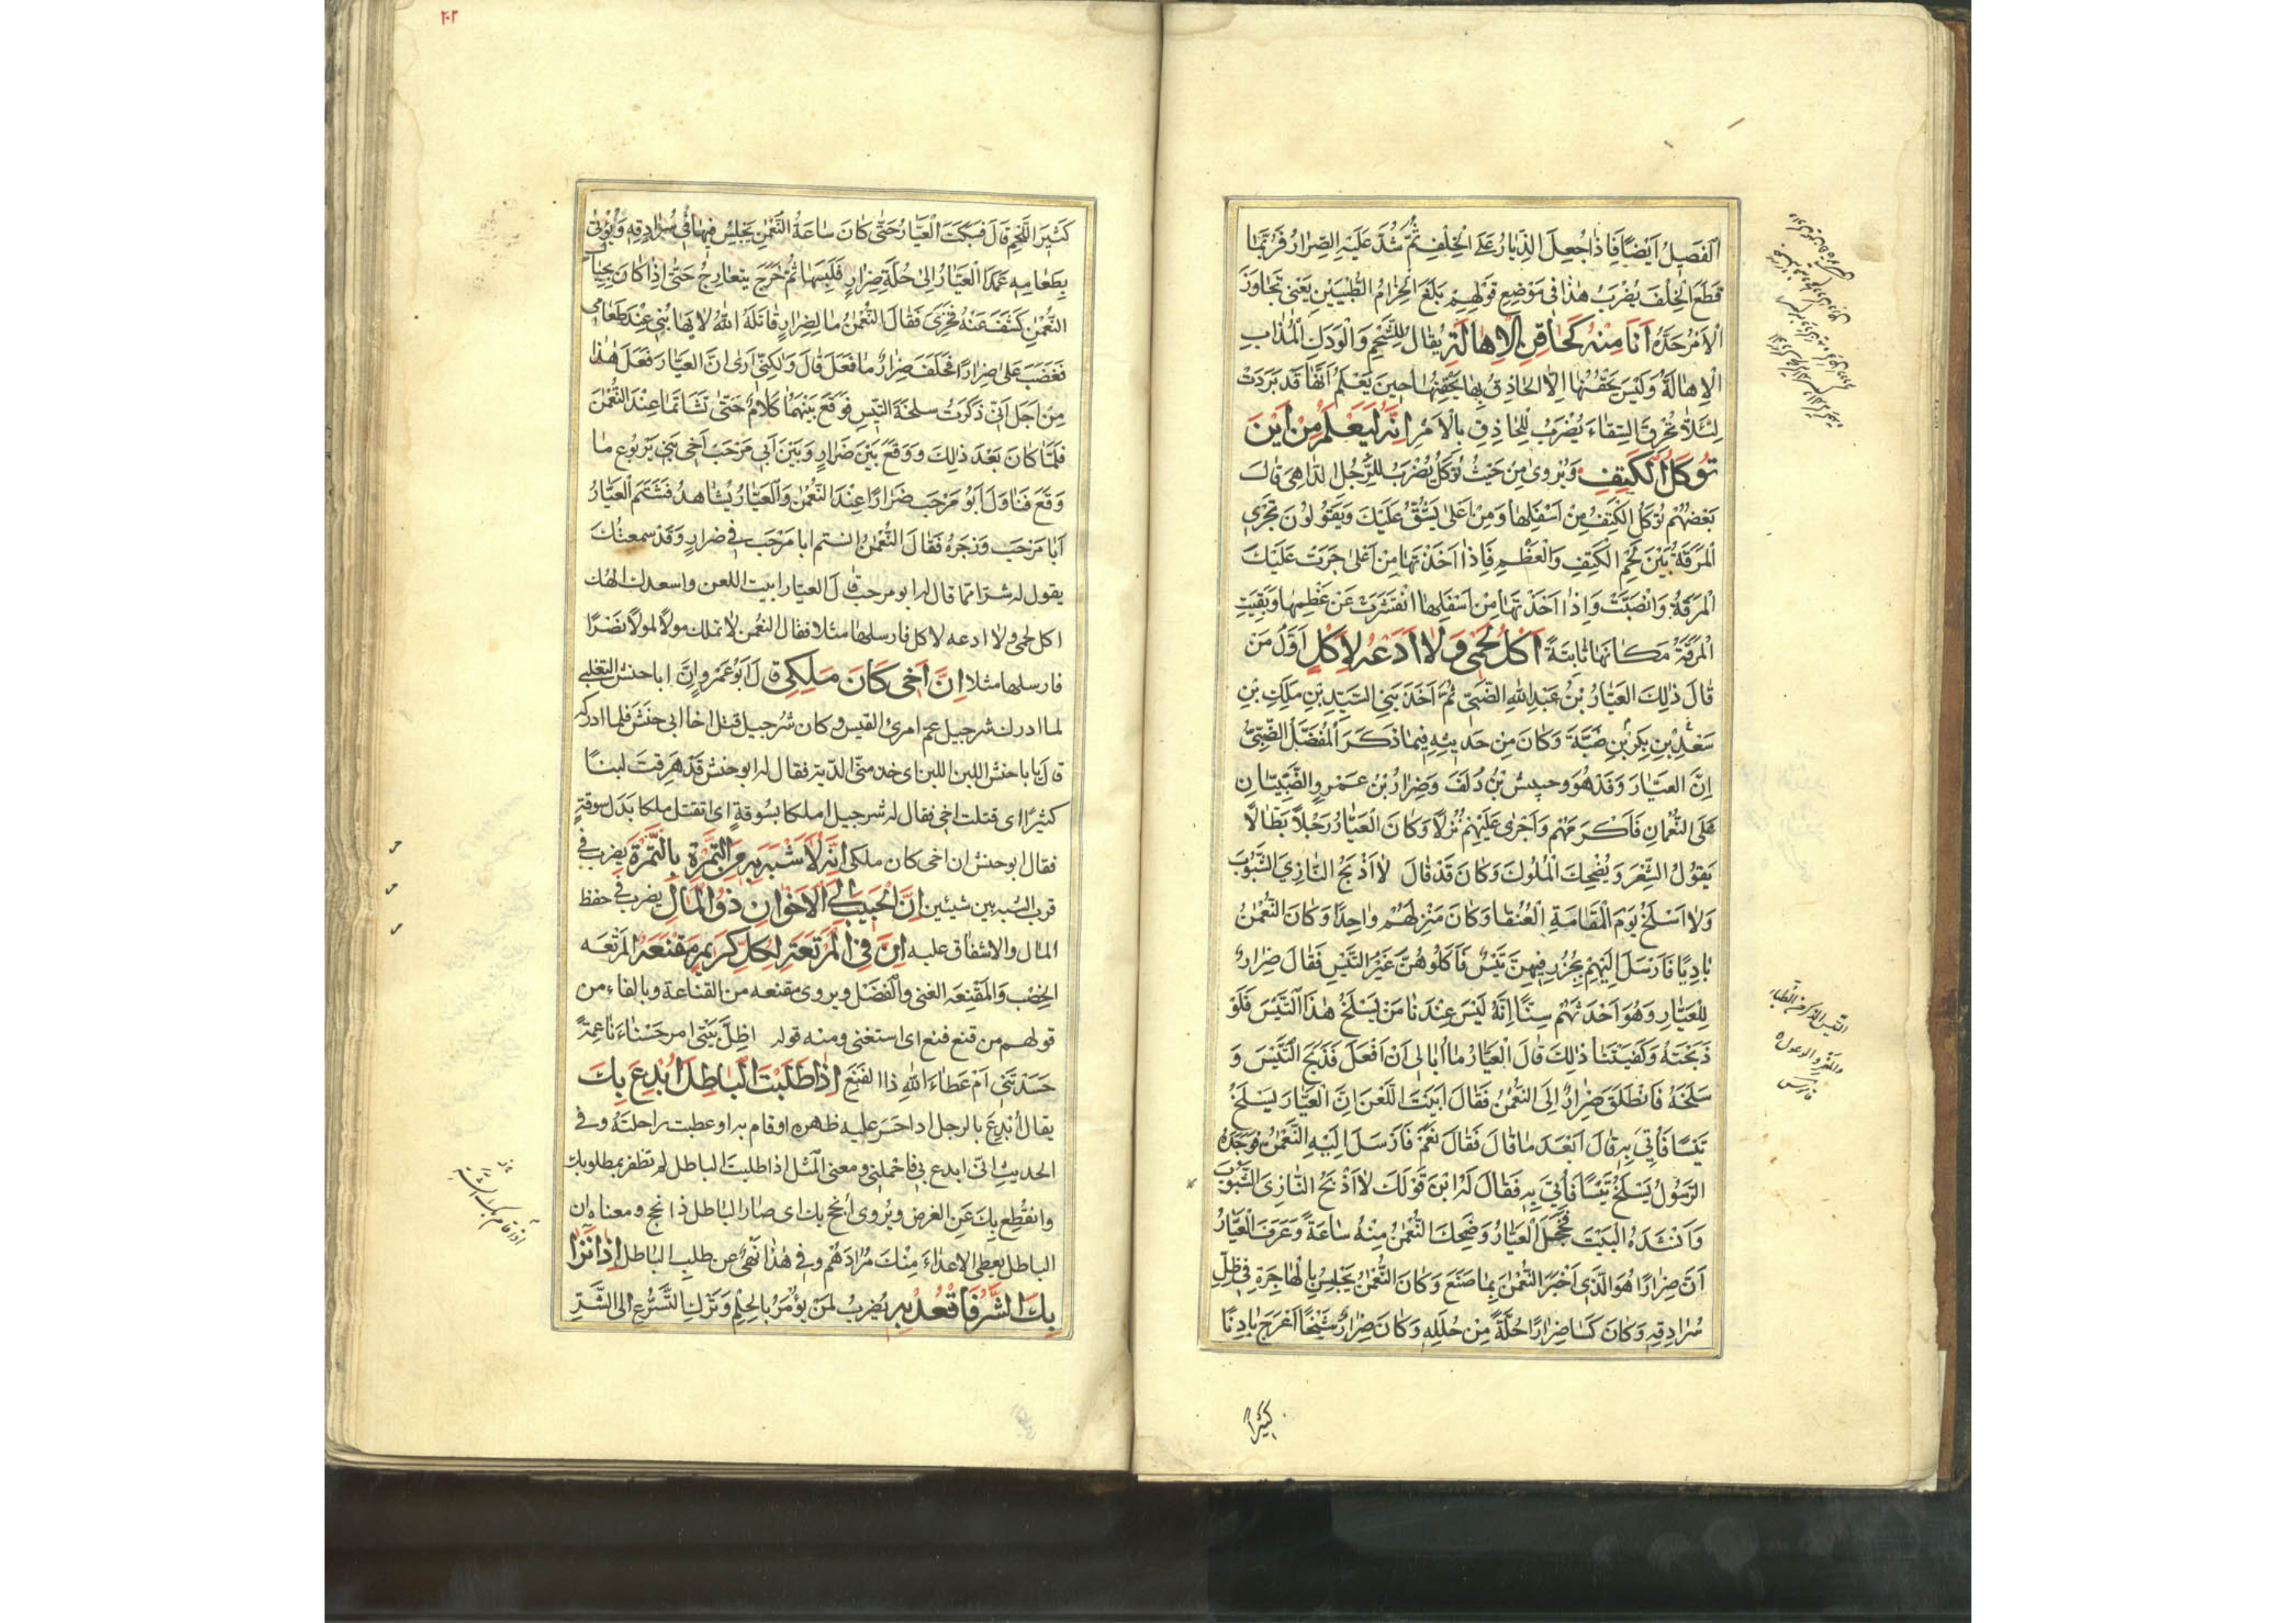 الفَصِيلُ اَيضًا فَاِذَا جُعِلَ الذِّيَارُ عَلَى الخِلْفِ ثُمَّ شُدَّ عَلَيْهِ الصِّرَارُ فَرُبَّمَا
قَطَعَ الْخِلْفَ يُضْرَبُ هٰذَا فى مَوْضِعِ قَوْلِهِمْ بَلَغَ الحِزَامُ الطُّبْيَيْنِ يَعْنى تَجَاوَزَ
الْاَمْرُ حَدَّهُ اَنَا مِنْهُ كَحَاقِنِ الْاِهَالَةِ يُقالُ لِلشَّحْمِ وَالْوَدَكِ الْمُذَابِ
الْاِهَالَةُ وَلَيْسَ يَحْقُنُهَا اِلَّا الحَاذِقُ بِهَا يَحْقِنُهَا حِينَ يَعْلَمُ اَنَّهَا قَدْ بَرَدَتْ
لِئَلَّا تُحْرِقَ السِّقَاءَ يُضْرَبُ لِلْحَاذِقِ بِالْاَمْرِ اِنَّهُ لَيَعْلَمُ مِنْ اَيْنَ
تُوكَلُ الْكَتِفُ وَيُروى مِنْ حَيْثُ تُوكَلُ يُضْرَبُ لِلرَّجُلِ الدَّاهِى قَالَ
بَعْضُهُمْ تُوكَلُ الْكَتِفُ مِنْ اَسْفَلِهَا وَمِنْ اَعْلى يَشُقُّ عَلَيْكَ وَيَقُولُونَ تَجْرِى
الْمَرَقَةُ بَيْنَ لَحْمِ الْكَتِفِ وَالْعَظْمِ فَاِذَا اَخَذْتَهَا مِنْ اَعْلى جَرَتْ عَلَيْكَ
الْمَرَقَةُ وَانْصَبَّتْ وَاِذَا اَخَذْتَهَا مِنْ اَسْفَلِهَا انْقَشَرَتْ عَنْ عَظْمِهَا وَبَقِيَتِ
الْمَرَقَةُ مَكَانَهَا ثَابِتَةً آكُلُ لَحْمى وَلَا اَدَعُهُ لِآكِلٍ اَوَّلُ مَنْ
قَالَ ذٰلِكَ الْعَيَّارُ بْنُ عَبْدِ اللهِ الضَّبِّىُّ ثُمَّ اَحَدُ بَنِى السَّيِّدِ بْنِ مٰلِكِ بْنِ
سَعْدِ بْنِ بَكْرِ بْنِ ضَبَّةَ وَكَانَ مِنْ حَدِيثِهِ فِيمَا ذَكَرَ الْمُفَضَّلُ الضَّبِّىُّ
اِنَّ الْعَيَّارَ وَفَدَ هُوَ وحبيش بْنُ دُلَفَ وَضِرَارُ بْنُ عَمْرٍو الضَّبِّيَّانِ
عَلَى النُّعْمَانِ فَاَكْرَمَهُمْ وَاَجْرٰى عَلَيْهِمْ نُزُلًا وَكَانَ الْعَيَّارُ رَجُلًا بَطَّالًا
يَقُولُ الشِّعْرَ وَيُضْحِكُ الْمُلُوكَ وَكَانَ قَدْ قَالَ لَا اَذْبَحُ النَّازِىَ الشَّبُوبَ
وَلَا اَسْلَخُ يَوْمَ الْمَقَامَةِ الْعُنُقَا وَكَانَ مَنْزِلُهُمْ وَاحِدًا وَكَانَ النُّعْمٰنُ
بَادِيًا فَاَرْسَلَ اِلَيْهِمْ بِجُزُرٍ فِيهِنَّ تَيْسٌ فَاَكَلُوهُنَّ غَيْرَ التَّيْسِ فَقَالَ ضِرَارٌ
لِلْعَيَّارِ وَهُوَ اَحْدَثُهُمْ سِنًّا اِنَّهُ لَيْسَ عِنْدَنَا مَنْ يَسْلَخُ هٰذَا التَّيْسَ فَلَوْ
ذَبَحْتَهُ وَكَفَيْتَنَا ذٰلِكَ قَالَ الْعَيَّارُ مَا اُبَالِى اَنْ اَفْعَلَ فَذَبَحَ التَّيْسَ وَ
سَلَخَهُ فَانْطَلَقَ ضِرَارٌ اِلَى النُّعْمٰنِ فَقَالَ اَبَيْتَ اللَّعْنَ اِنَّ الْعَيَّارَ يَسْلَخُ
تَيْسًا فَاُتِىَ بِهِ قَالَ اَبَعْدَ مَا قَالَ فَقَالَ نَعَمْ فَاَرْسَلَ اِلَيْهِ النُّعْمٰنُ فَوَجَدَهُ
الرَّسُولُ يَسْلَخُ تَيْسًا فَاُتِىَ بِهِ فَقَالَ لَهُ اَيْنَ قَوْلُكَ لَا اَذْبَحُ النَّازِىَ الشَّبُوبَ
وَاَنْشَدَهُ الْبَيْتَ فَخَجِلَ الْعَيَّارُ وَضَحِكَ النُّعْمٰنُ مِنْهُ سَاعَةً وَعَرَفَ الْعَيَّارُ
اَنَّ ضِرَارًا هُوَ الَّذِى اَخْبَرَ النُّعْمٰنَ بِمَا صَنَعَ وَكَانَ النُّعْمٰنُ يَجْلِسُ بِالْهَاجِرَةِ فِى ظِلِّ
سُرَادِقِهِ وَكَانَ كَسَا ضِرَارًا حُلَّةً مِنْ حُلَلِهِ وَكَانَ ضِرَارٌ شَيْخًا اَعْرَجَ بَادِنًا
كثيرا
٢٠٢
كَثِيرَ اللَّحْمِ قَالَ فَسَكَتَ الْعَيَّارُ حَتّٰى كَانَ سَاعَةُ النُّعْمٰنِ يَجْلِسُ فِيهَا فِى سُرَادِقِهِ وَيُؤْتٰى
بِطَعَامِهِ عَمَدَ الْعَيَّارُ اِلٰى حُلَّةِ ضِرَارٍ فَلَبِسَهَا ثُمَّ خَرَجَ يتعارج حَتّٰى اِذَا كَانَ بِحِيَالِ
النُّعْمٰنِ كَشَفَ عَنْهُ فَخَرِىَ فَقَالَ النُّعْمٰنُ مَا لِضِرَارٍ قَاتَلَهُ اللهُ لَا يَهَابُنِى عِنْدَ طَعَامِى
فَغَضِبَ عَلٰى ضِرَارًا فَحَلَفَ ضِرَارٌ مَا فَعَلَ قَالَ وَلٰكِنِّى اَرٰى اَنَّ الْعَيَّارَ فَعَلَ هٰذَا
مِنْ اَجَلِ اَنّى ذَكَرْتُ سلخة التَّيْسِ فَوَقَعَ بَيْنَهُمَا كَلَامٌ حَتّٰى تَشَاتَمَا عِنْدَ النُّعْمٰنَ
فَلَمَّا كَانَ بَعْدَ ذٰلِكَ وَوَقَعَ بَيْنَ ضِرَارٍ وَبَيْنَ اَبِى مَرْحَبٍ اَخِى بَنِى يَرْبُوعٍ مَا
وَقَعَ تَنَاوَلَ اَبُو مَرْحَبٍ ضِرَارًا عِنْدَ النُّعْمٰنِ وَالْعَيَّارُ يُشَاهِدُ فَشَتَمَ الْعَيَّارُ
اَبَا مَرْحَبٍ وَزَجَرَهُ فَقَالَ النُّعْمٰنُ اتشتم ابا مَرْحَبٍ فى ضِرارٍ وَقَدْ سَمِعتُكَ
يقول له شرّا ممّا قال له ابو مرحب قال العيّار ابيت اللعن واسعدك الهك
آكل لحمى ولا ادعه لاكل فارسلها مثلا فقال النعمٰن لا تملك مولًا لمولًا نَصْرًا
فارسلها مثلا اِنَّ اَخِى كَانَ مَلِكِى قال اَبُو عَمْرو اِنَّ اباحنش التغلبى
لما ادرك شرجيل عمّ امرئ القيس وكان شُرجيل قتل اخا ابى حَنَش فلما ادركه
قال يا باحنش اللبن اللبن اى خذ منّى الدّية فقال له ابو حنش قد هَرَقتَ لبنًا
كثيرًا اى قتلت اخى فقال له شرجيل املكا بسُوقةٍ اى اتقتل ملكا بَدَل سوقةٍ
فقال ابو حنش ان اخى كان ملكى اِنَّهُ لَاَشْبَهُ بِهِ مِنَ التَّمْرَةِ بِالتَّمْرَةِ يضرب فى
قرب الشبه بين شيئين اِنَّ الْحَبِيبَ اِلَى الْاَخْوَانِ ذُو الْمَالِ يضرب فى حفظ
المال والاشفاق عليه اِنَّ فِى الْمَرْتَعَةِ لِكُلِّ كَرِيمٍ مَقْنَعَةً المَرْتعَه
الخِصْب وَالمَقْنِعَه الغنى والْفَضْل ويروى مقنعه من القناعة وبالفاء من
قولهم من قنع فنع اى استغنى ومنه قوله اظِلّ بَيْتى ام حَسْنَاءَ نَاعِمَةً
حَسَدْتَنى اَمْ عَطَاءَ اللهِ ذا الفَنَعِ اِذَا طَلَبْتَ الْبَاطِلَ اُبْدِعَ بِكَ
يقال اُبْدِعَ بالرجل اذا حَسَرَ عليه ظهره او قام به او عطبت راحلتَهُ وفى
الحديثِ انّى ابدع بى فاحملنى ومعنى الْمَثَل اذا طلبتَ الباطل لم تظفر بمطلوبك
وانقُطِعَ بِكَ عَنِ الغرض ويُروى اُنْجحَ بك اى صَارَ البَاطل ذا نجح ومعناه ان
الباطل يعطى الاعداءَ مِنْكَ مُرَادَهُم وفى هٰذا نَهْىٌ عن طلبِ الباطل اِذَا نَزَا
بِكَ الشَّرُّ فَاقْعُدْ بِهِ يُضْرَبُ لِمَنْ يؤْمَرُ بِالْحِلْمِ وَتَرْكِ التَّسَرُّعِ الى الشَّرِّ